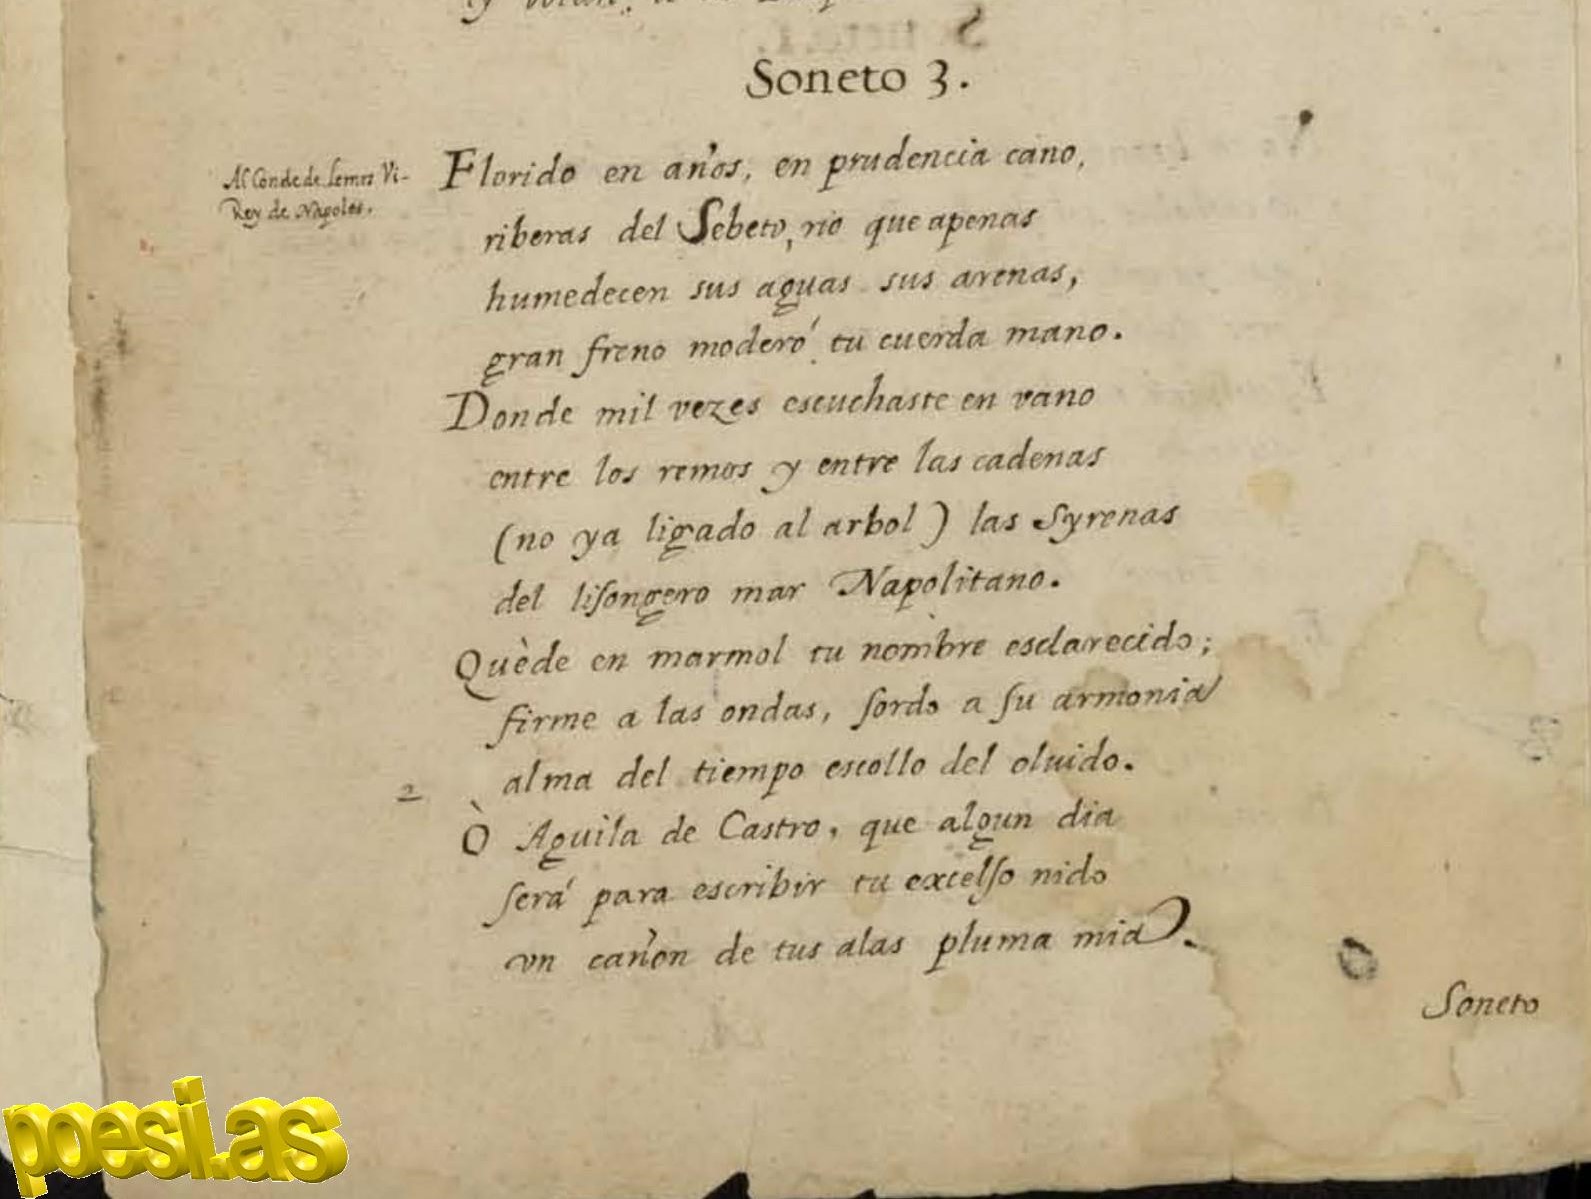 Soneto 3.
Al Conde de Lemos Vi-
Rey de Napoles.
Florido en años, en prudencia cano,
riberas del Sebeto, rio que apenas
humedecen sus aguas sus arenas,
gran freno moderó tu cuerda mano.
Donde mil vezes escuchaste en vano
entre los remos y entre las cadenas
(no ya ligado al arbol) las Syrenas
del lisongero mar Napolitano.
Quède en marmol tu nombre esclarecido;
firme a las ondas, sordo a su armonia
alma del tiempo escollo del oluido.
2
Ò Aguila de Castro, que algun dia
será para escribir tu excelso nido
vn cañon de tus alas pluma mia.
Soneto
poesi.as